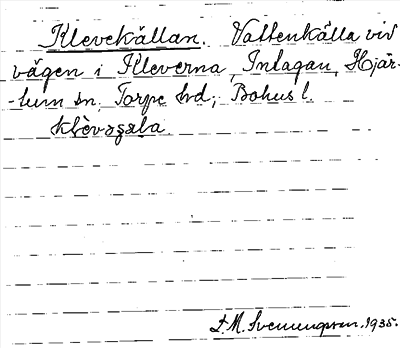 Klevekällan. Vattenkälla vid
vägen i Kleverna, Inlagan, Hjär-
-tum sn. Torpe hd; Bohusl.
S. M. Svenungsson. 1935.